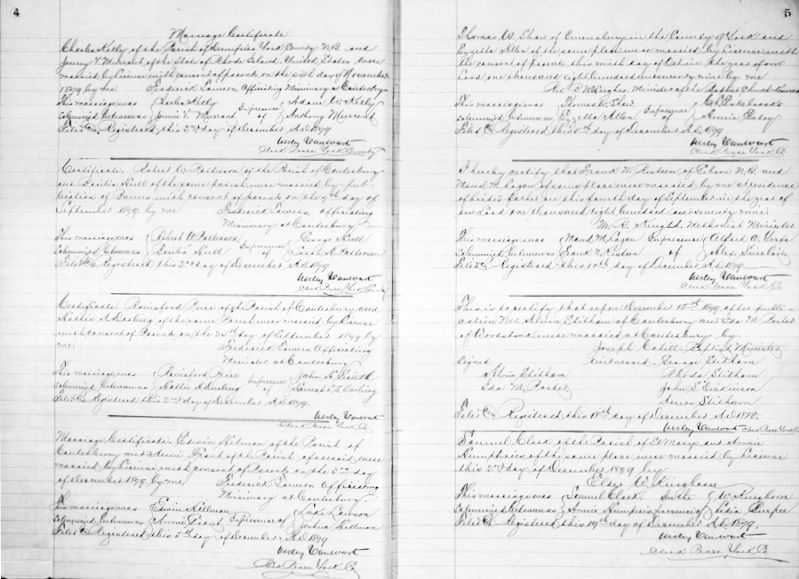 4
Marriage Certificate
Charles Kelly of the Parish of Dumfries York County N.B. and
Jenny V. Merrant of the State of Rhode Island United States were
married by License with consent of parents on the sixth day of November
1879 by me Frederick Pamson Officiating Missionary at Canterbury
This marriage was Charles Kelly In presence Adam W. Kelly
solemnized between us Jennie V. Merrant of Anthony Merrant
Filed & Registered this 2nd day of December A.D. 1879
Wesley Vanwart
Clerk Peace York County
Certificate. Robert W. Patterson of the Parish of Canterbury
and of the same parish were married by pub-
lication of Banns with consent of parents on the 9th day of
September 1879 by me Frederick Pamson Officiating
Missionary at Canterbury
This marriage was Robert W. Patterson In presence George
solemnized between us of Patterson
Filed & Registered this 2nd day of December A.D. 1879
Wesley Vanwart
Clerk Peace York County
Certificate Rainsford of the Parish of Canterbury and
Hattie A. Darling of the same Parish were married by License
with consent of Parents on the 24th day of September 1879 by
me Frederick Pamson Officiating
Minister at Canterbury
This marriage was Rainsford In presence John S.
solemnized between us Hattie A. Darling of Darling
Filed & Registered this 2nd day of December A.D. 1879
Wesley Vanwart
Clerk Peace York Co
Marriage Certificate. Edwin Hillman of the Parish of
Canterbury and Annie Grant of the Parish aforesaid were
married by License with consent of Parents on the 3rd day
of December 1879 by me Frederick Pamson Officiating
Missionary at Canterbury
This marriage was Edwin Hillman
solemnized between us Annie Grant In presence of Joshua Hillman
Filed & Registered this 5th day of December A.D. 1879
Wesley Vanwart
Clk Peace York Co
5
Thomas W. Shaw of Queensbury in the County of York and
Allen of the same place were married by License with
the consent of parents this ninth day of Oct in the year of our
Lord one thousand eight hundred and seventy nine by me
Minister of the Baptist Church
This marriage was Thomas W. Shaw In presence
solemnized between us Allen of Annie
Filed & Registered this day of December A.D. 1879
Wesley Vanwart
Clerk Peace York Co
I hereby certify that Frank W. of Gibson N.B. and
Maud M. Logan of same place were married by me at residence
of brides father on this fourth day of September in the year of
our Lord one thousand eight hundred and seventy nine
M. R. Knight, Methodist Minister
This marriage was Maud M. Logan In presence Alfred
solemnized between us Frank W. of
Filed & Registered this 10th day of December A.D. 1879
Wesley Vanwart
Clerk Peace York Co
This is to certify that upon December 15th 1879 after publi-
cation Mr. Alvin Stitham of Canterbury and Ida M. Porter
of Woodstock were married at Canterbury by
Joseph Cahill Bapt. Minister
Signed Witnesses George Stitham
Alvin Stitham Rhoda Stitham
Ida M. Porter John S. Dickinson
Stitham
Filed & Registered this 18th day of December A.D. 1879
Wesley Vanwart Clerk Peace York Co
Samuel Clark of the Parish of St Marys and Annie
Humphries of the same place were married by License
this 2nd day of December 1879 by
Elder W. Kinghorn
This marriage was Samuel Clark In the W. Kinghorn
solemnized between us Annie Humphries presence of Lydia
Filed & Registered this 19th day of December A.D. 1879
Wesley Vanwart
Clerk Peace York Co